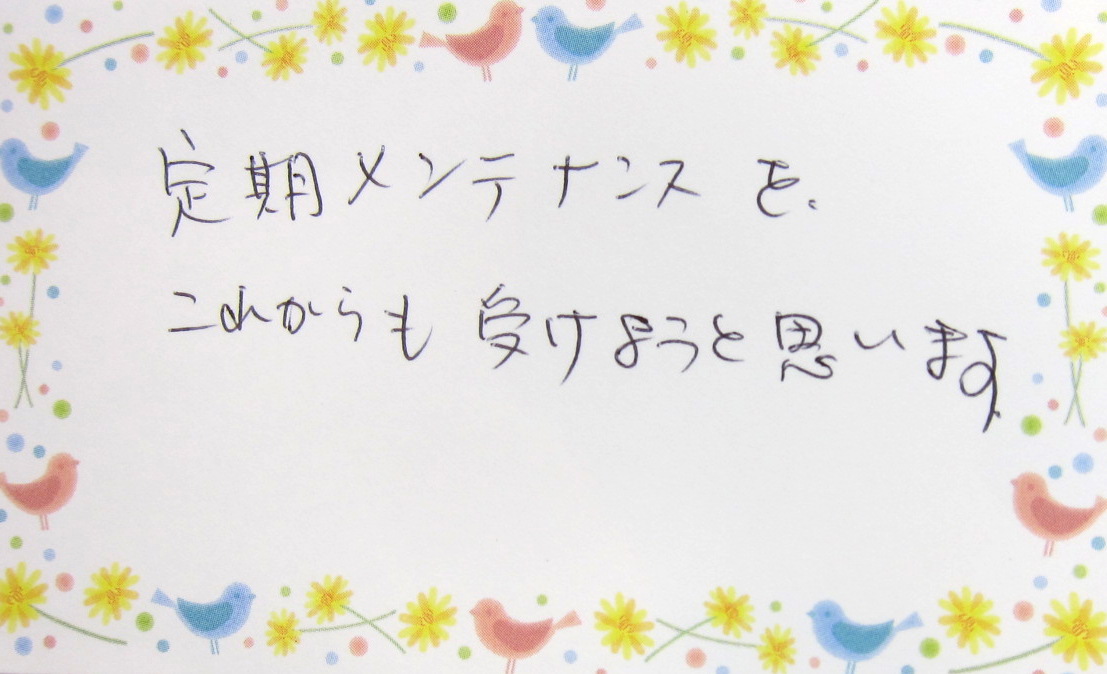 定期メンテナンスを、
これからも受けようと思います